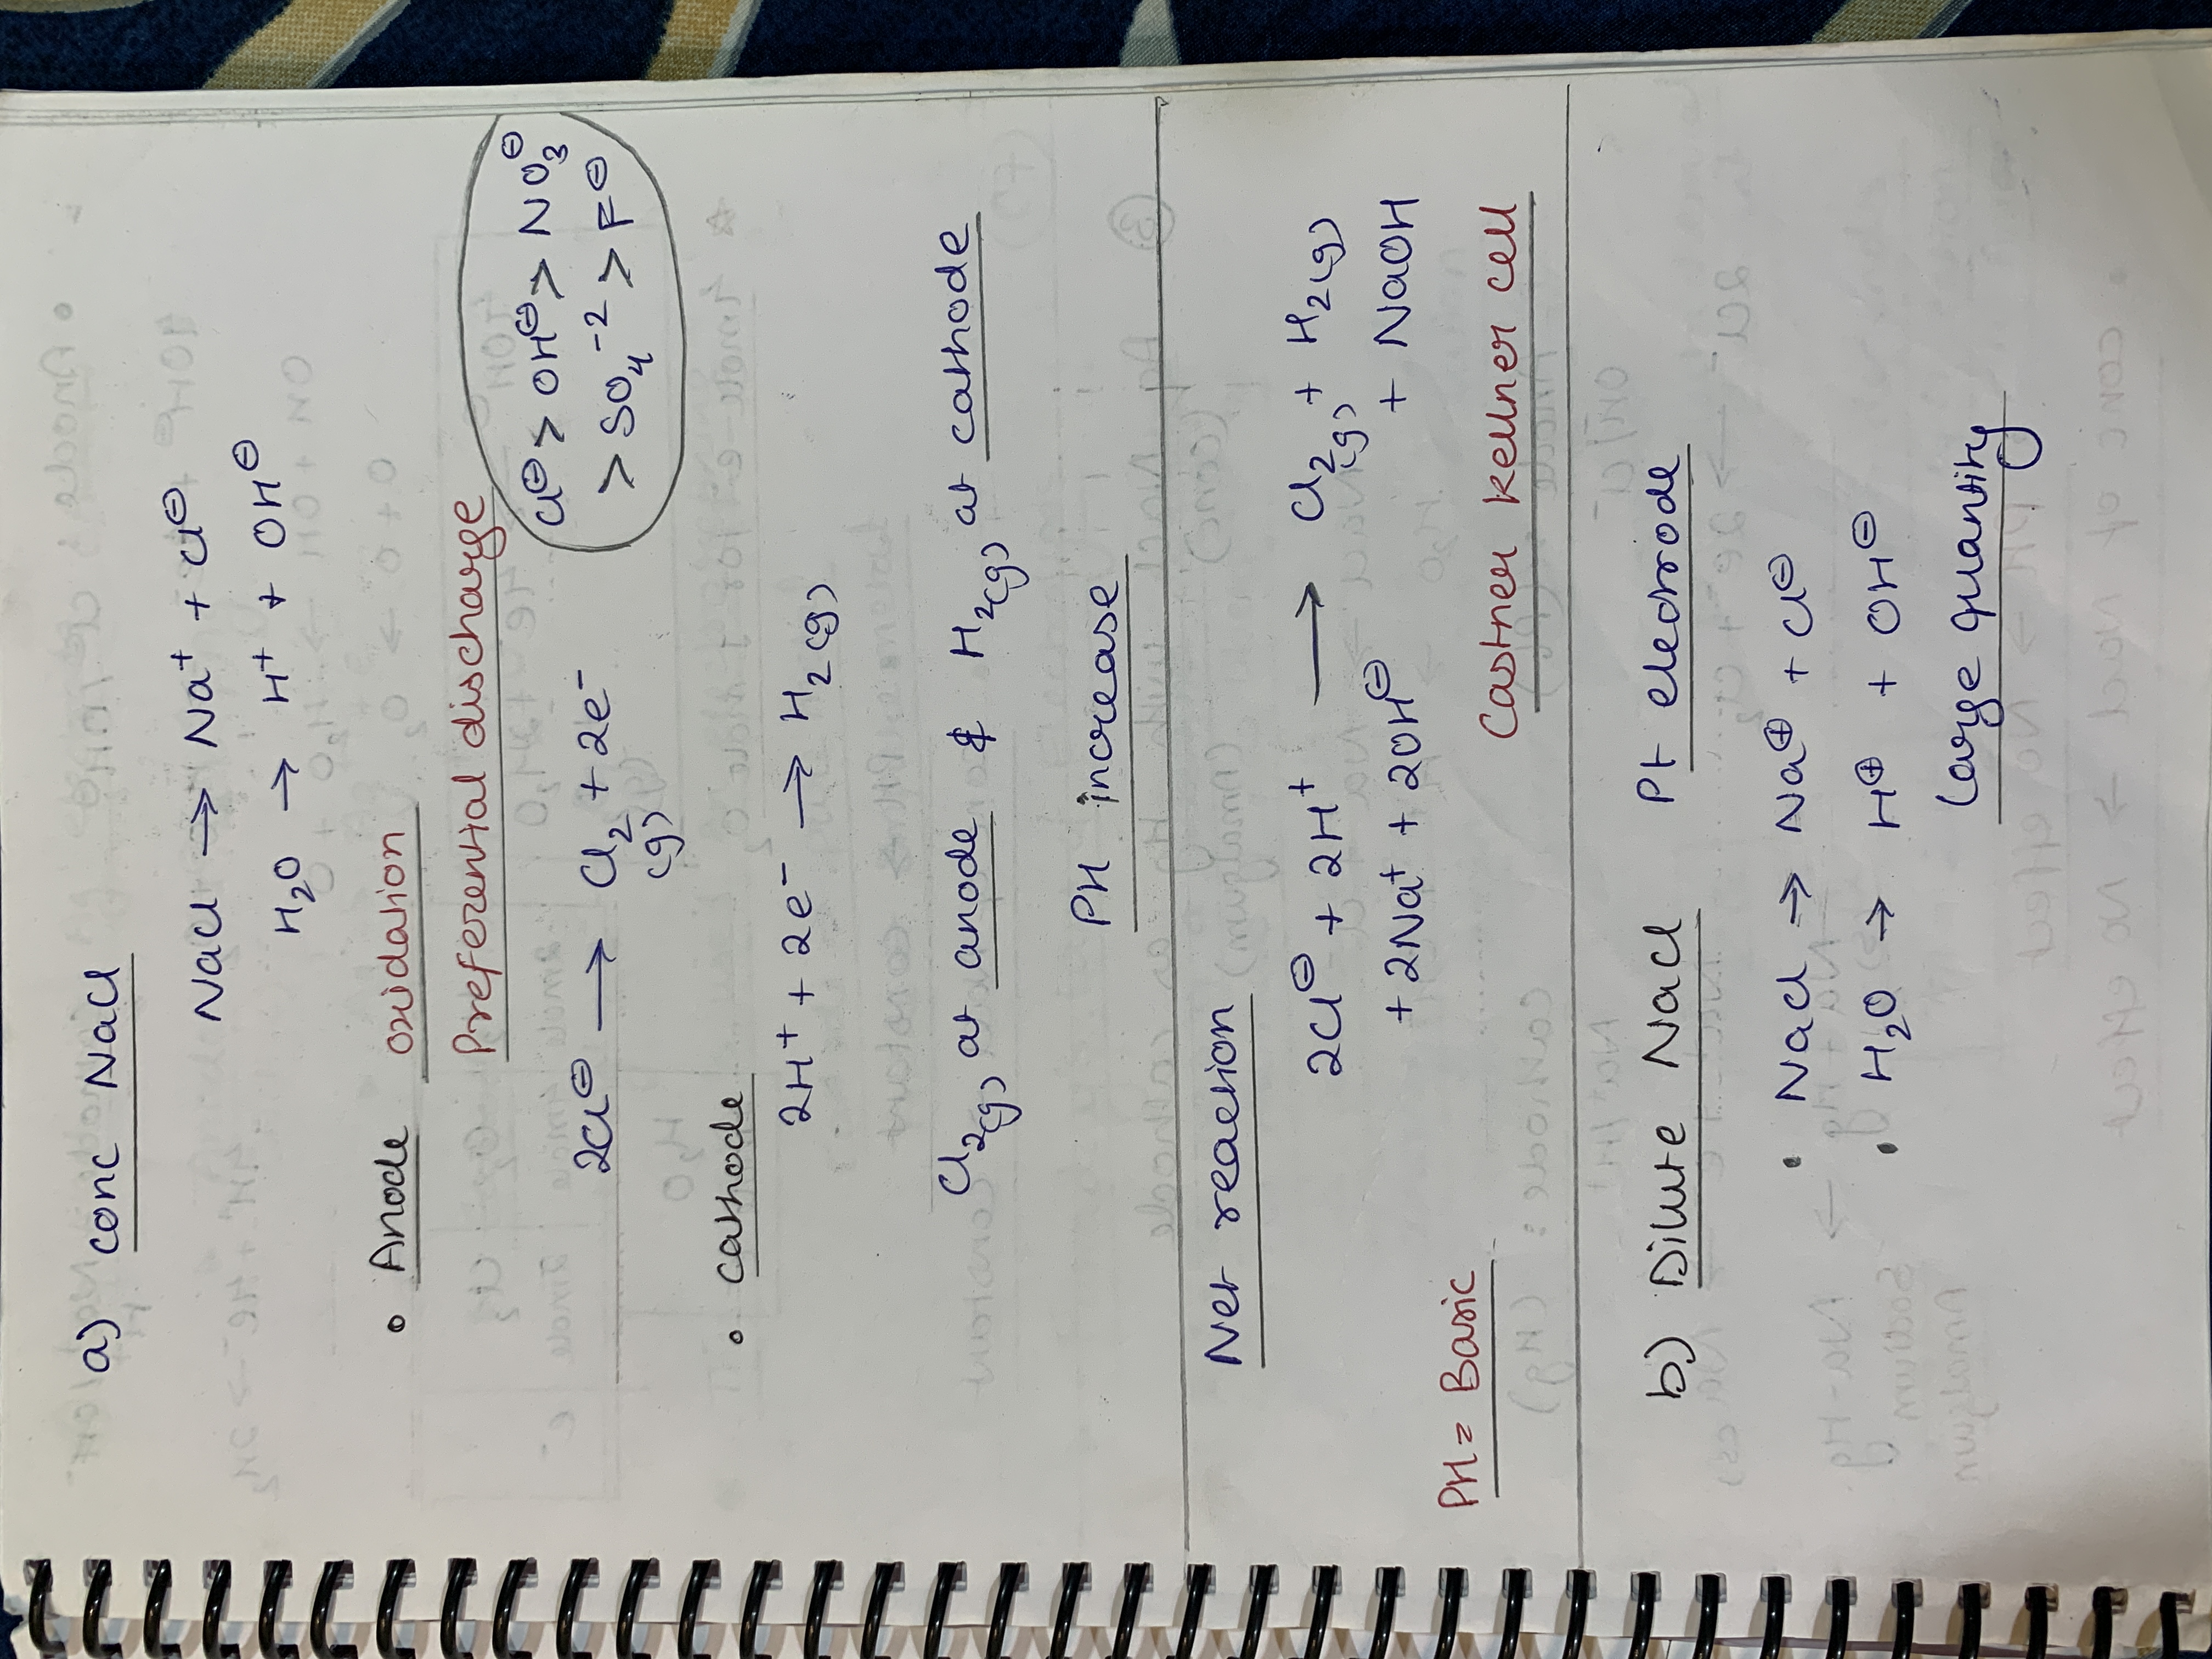 a) conc NaCl
NaCl → Na⁺ + Cl⊖
H₂O → H⁺ + OH⊖
• Anode oxidation
Preferential discharge
Cl⊖ > OH⊖ > NO₃⊖
> SO₄⁻² > F⊖
2Cl⊖ → Cl₂ + 2e⁻
(g)
• Cathode
2H⁺ + 2e⁻ → H₂(g)
Cl₂(g) at anode & H₂(g) at cathode
PH increase
Net reaction
2Cl⊖ + 2H⁺ → Cl₂(g) + H₂(g)
+ 2Na⁺ + 2OH⊖ + NaOH
PH = Basic
Castner Kellner cell
b) Dilute NaCl Pt electrode
• NaCl → Na⊕ + Cl⊖
• H₂O → H⊕ + OH⊖
Large quantity